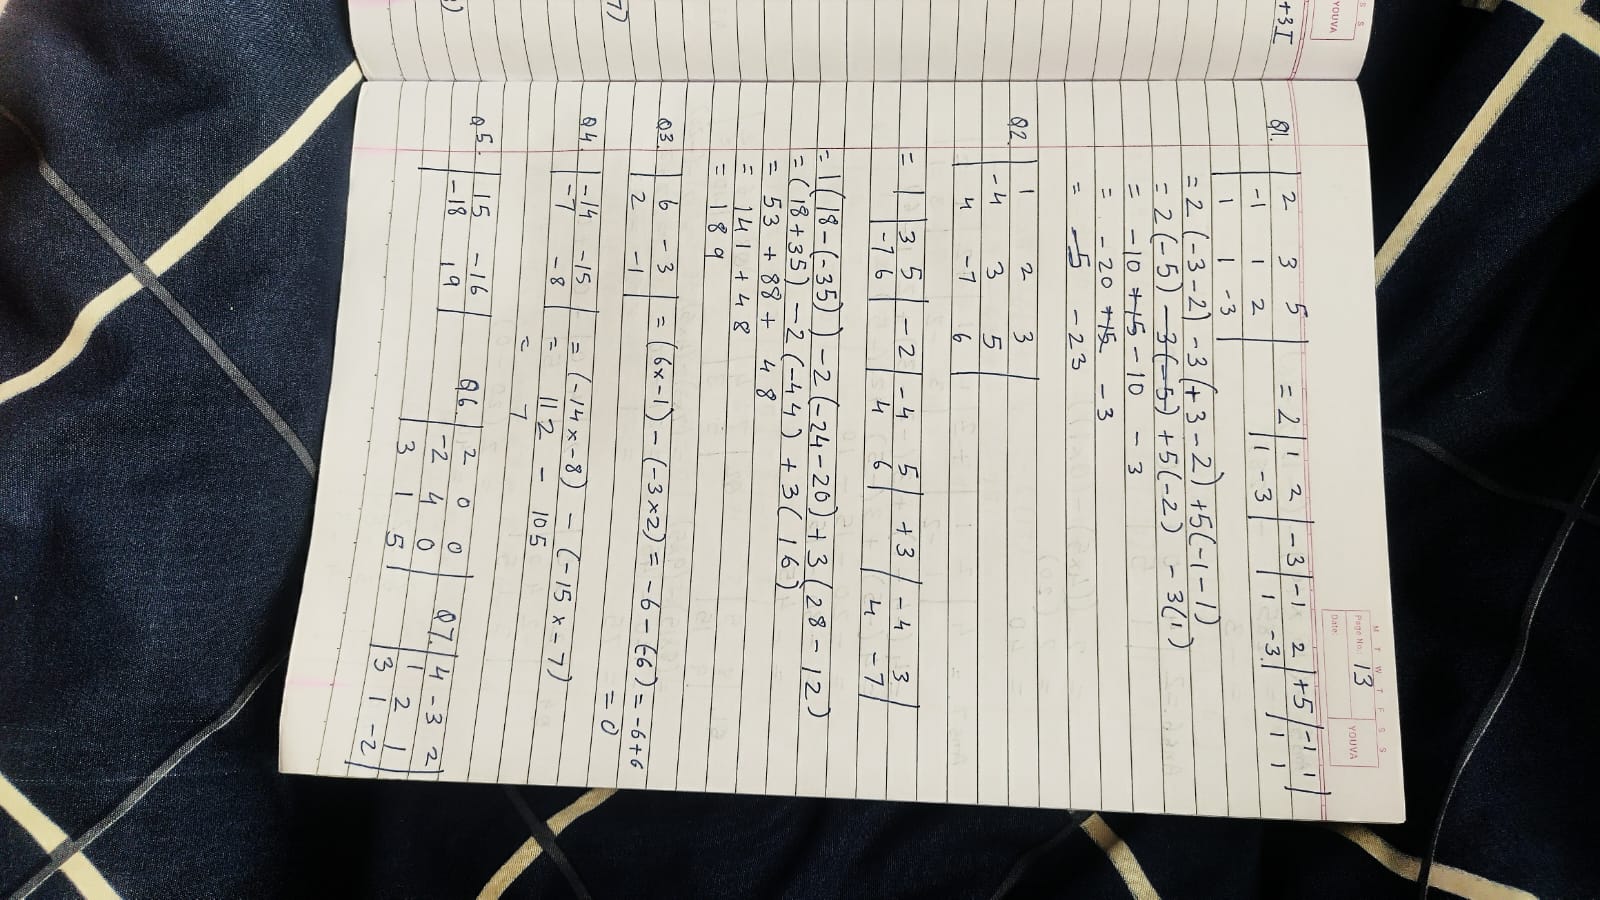 S S
YOUVA
+3I
7)
M T W T F S S
Page No.: 13
Date:
YOUVA
Q1. | 2 3 5 | = 2 | 1 2 | - 3 | -1 2 | +5 | -1 1 |
| -1 1 2 | | 1 -3 | | 1 -3 | | 1 1 |
| 1 1 -3 |
= 2 (-3-2) -3 (+3-2) +5(-1-1)
= 2(-5) -3(-5) +5(-2) - 3(1)
= -10 +15 -10 - 3
= -20 +15 -3
= -5 -23
Q2. | 1 2 3 |
| -4 3 5 |
| 4 -7 6 |
= 1 | 3 5 | -2 | -4 5 | +3 | -4 3 |
| -7 6 | | 4 6 | | 4 -7 |
= 1(18-(-35)) -2(-24-20) +3(28-12)
= (18+35) -2(-44) +3(16)
= 53 +88+ 48
= 141 +48
= 189
Q3. | 6 -3 | = (6x-1) - (-3x2) = -6-(-6) = -6+6
| 2 -1 | = 0
Q4. | -14 -15 | = (-14x-8) - (-15x-7)
| -7 -8 | = 112 - 105
= 7
Q5. | 15 -16 | Q6. | 2 0 0 | Q7. | 4 -3 2 |
| -18 19 | | -2 4 0 | | 1 2 1 |
| 3 1 5 | | 3 1 -2 |